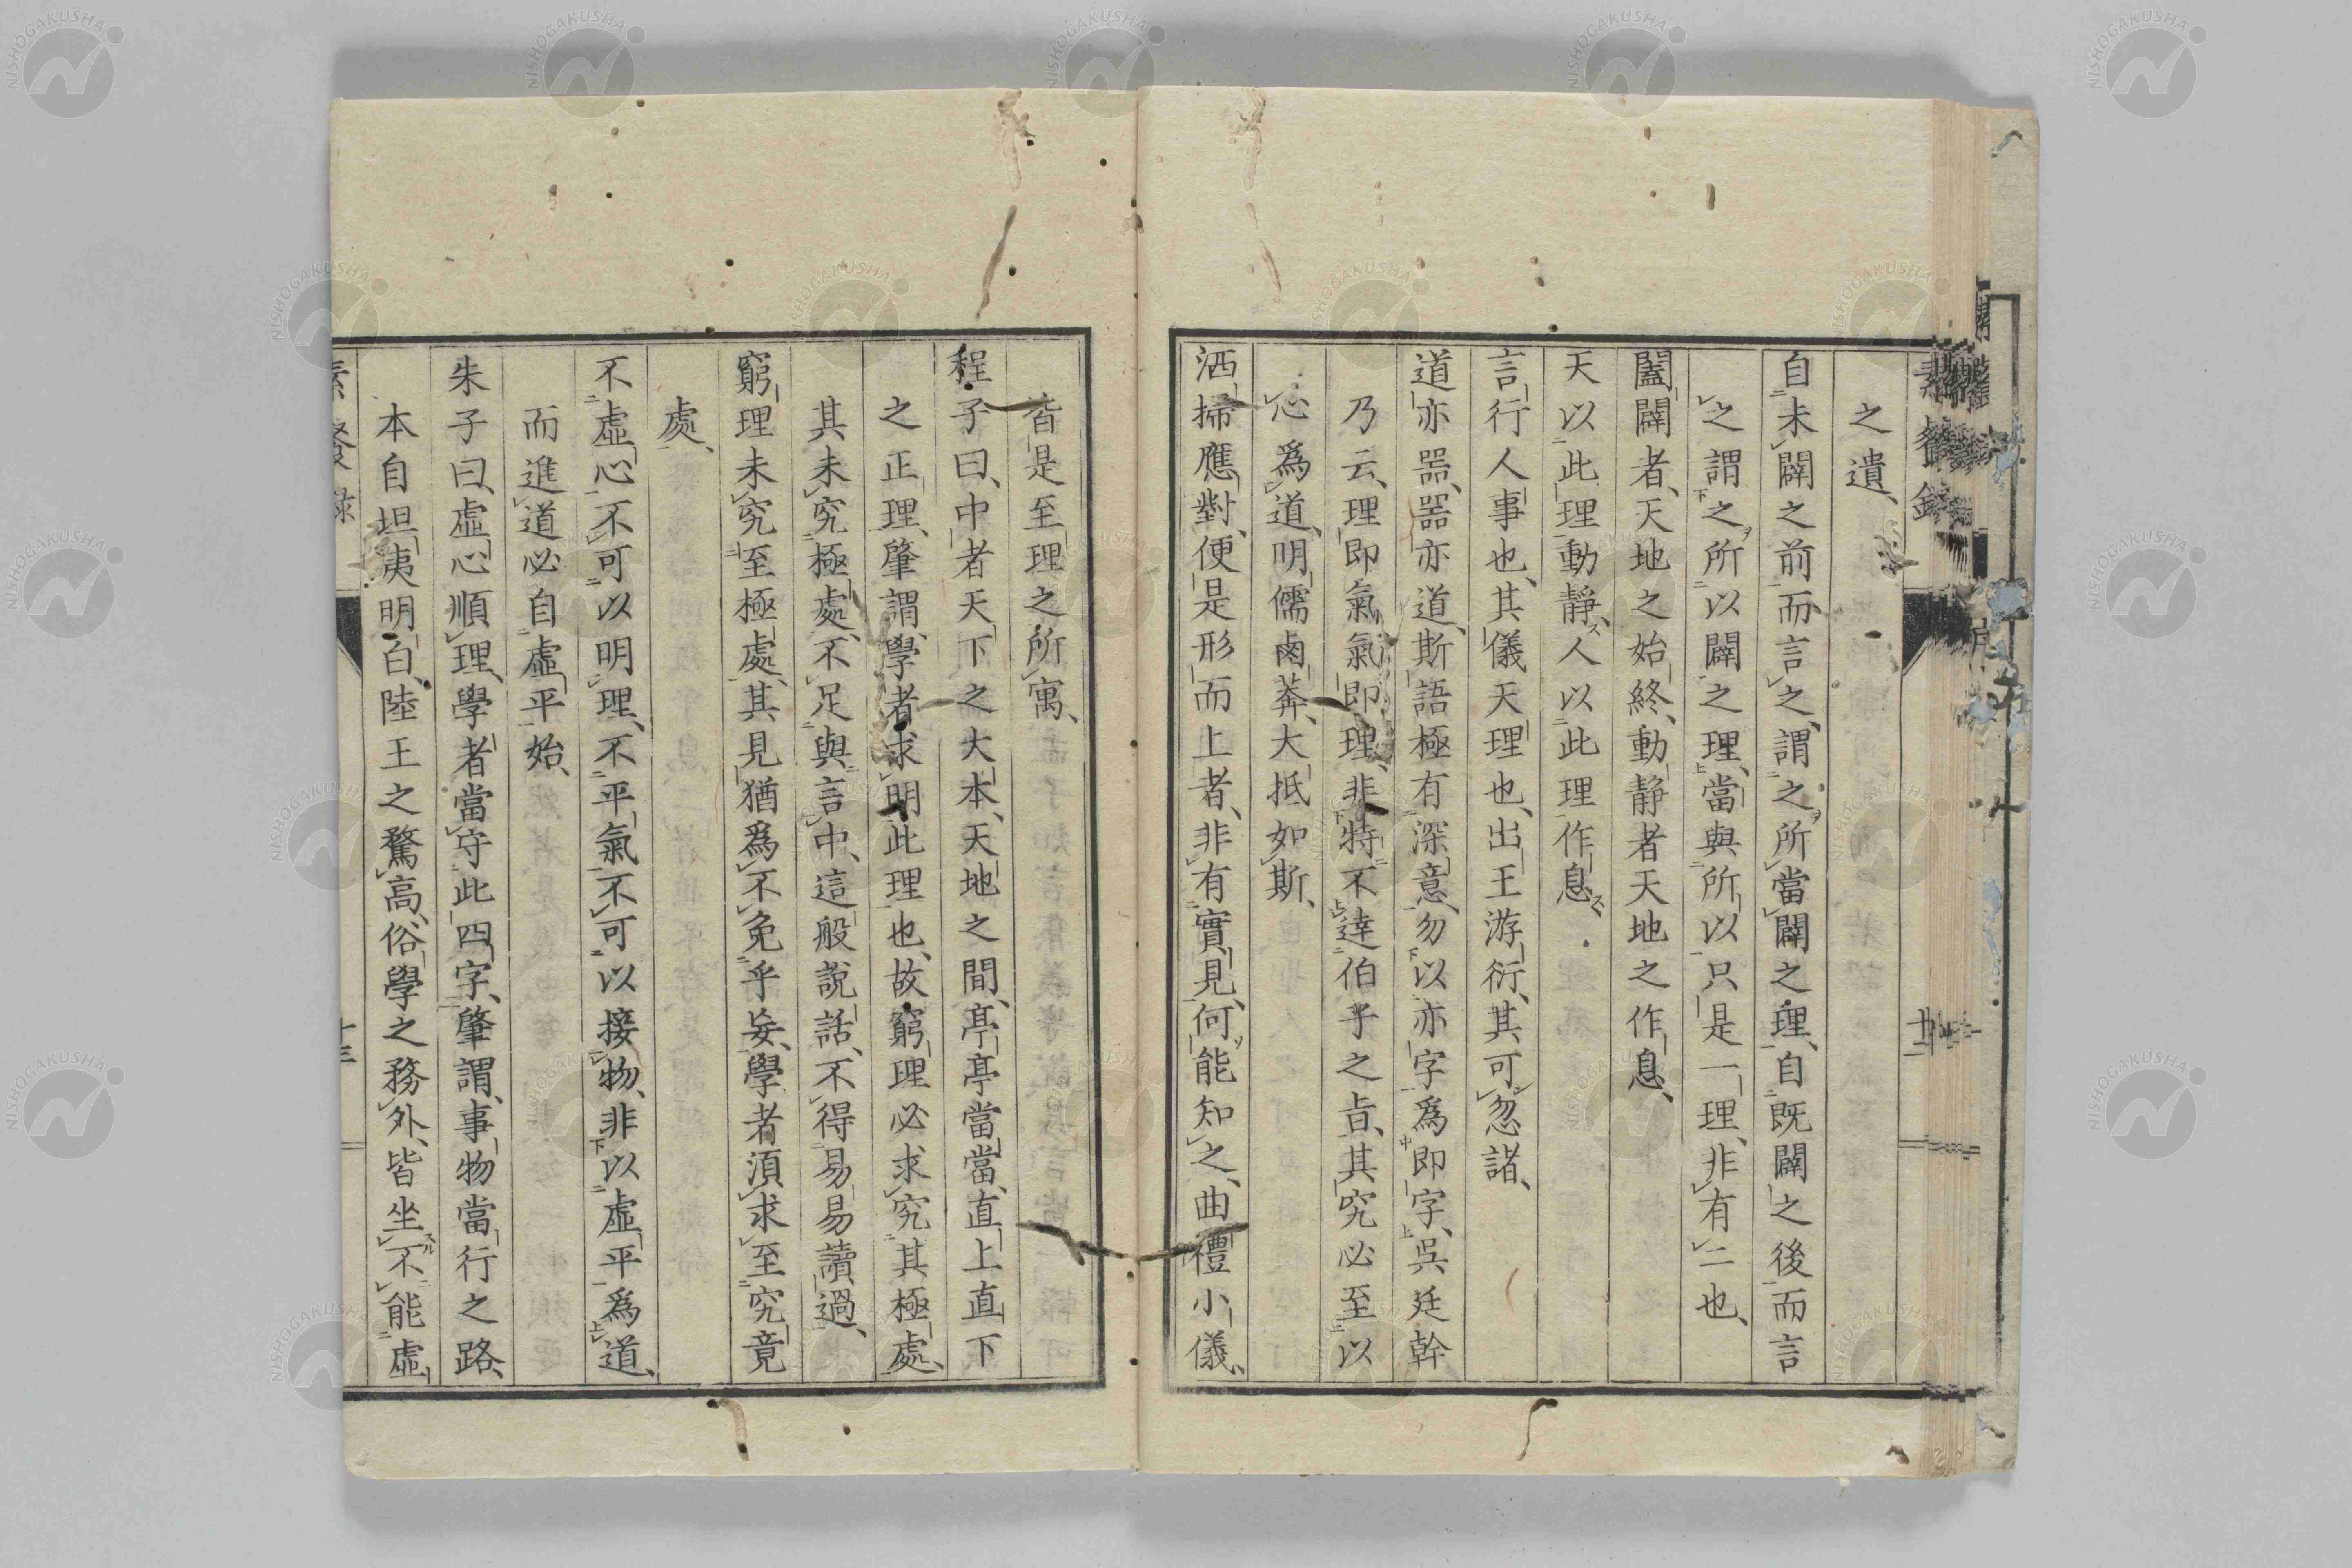 之遺、
自未闢之前而言之、謂之所當闢之理、自既闢之後而言
之謂之所以闢之理、當與所以只是一理、非有二也、
闔闢者、天地之始終、動靜者天地之作息、
天以此理動靜、人以此理作息、
言行人事也、其儀天理也、出王游衍、其可忽諸、
道亦器、器亦道、斯語極有深意、勿以亦字爲即字、吳廷幹
乃云、理即氣氣即理、非特不達伯子之旨、其究必至以
心爲道、明儒鹵莽、大抵如斯、
洒掃應對、便是形而上者、非有實見、何能知之、曲禮小儀、
皆是至理之所寓、
程子曰、中者天下之大本、天地之間、亭亭當當、直上直下
之正理、肇謂、學者求明此理也、故窮理必求究其極處、
其未究極處、不足與言中、這般說話、不得易易讀過、
窮理未究至極處、其見猶爲不免乎妄、學者須求至究竟
處、
不虛心不可以明理、不平氣不可以接物、非以虛平爲道、
而進道必自虛平始、
朱子曰、虛心順理、學者當守此四字、肇謂、事物當行之路、
本自坦夷明白、陸王之騖高、俗學之務外、皆坐不能虛
素餐錄
十三
NISHOGAKUSHA